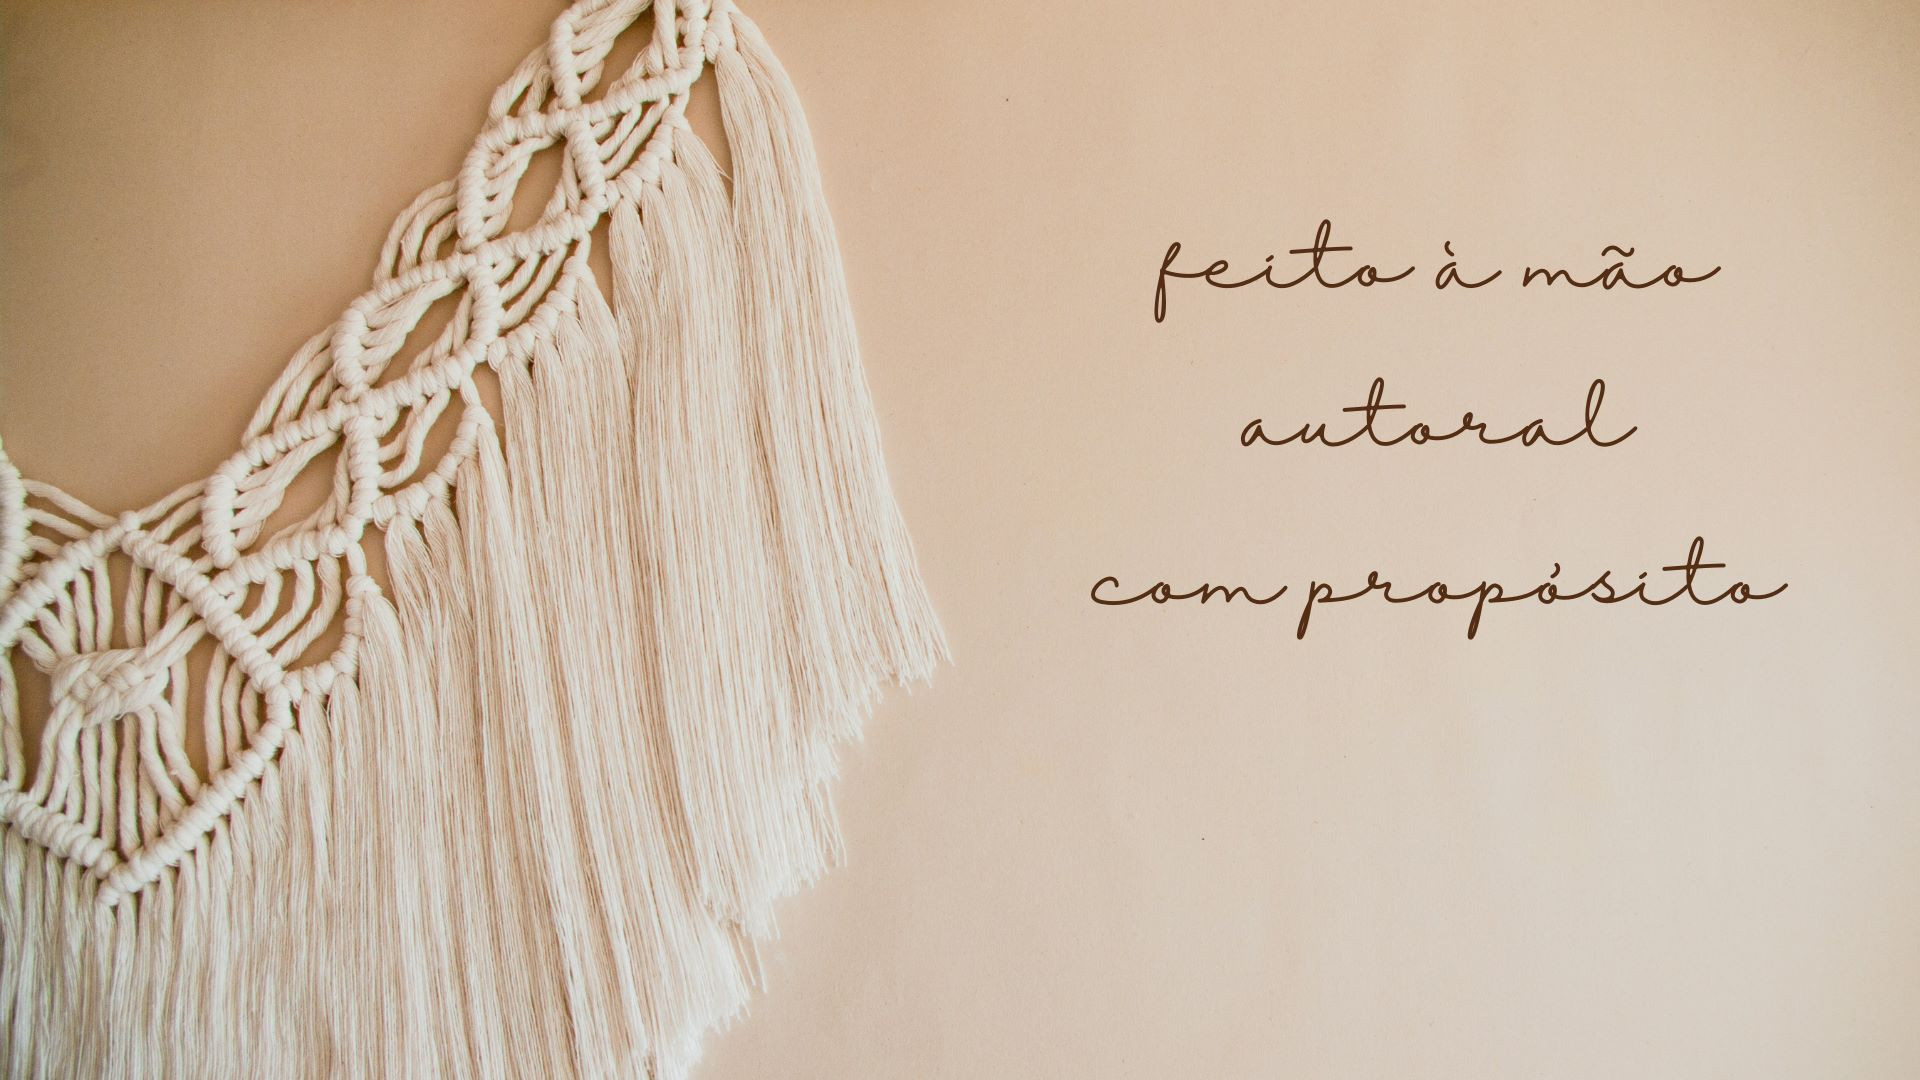 feito à mão
autoral
com propósito